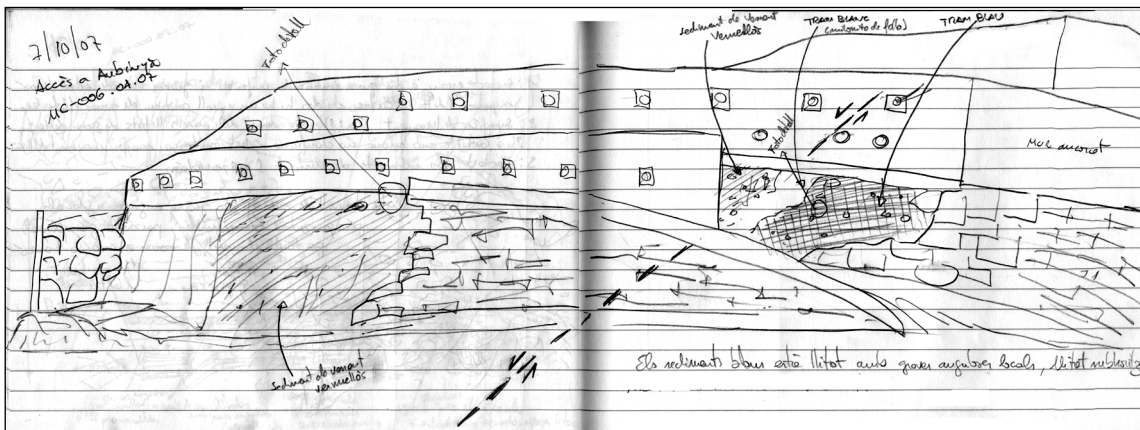 7/10/07
Accès a Aubinyà
MC-006.01.07
Foto detall
sediment de vessant
vermellós
sediment de vessant
vermellós
TRAM BLANC
(milonita de falla)
TRAM BLAU
Foto detall
Mur ancorat
Els sediments blaus està llitat amb graves anguloses locals, llitat